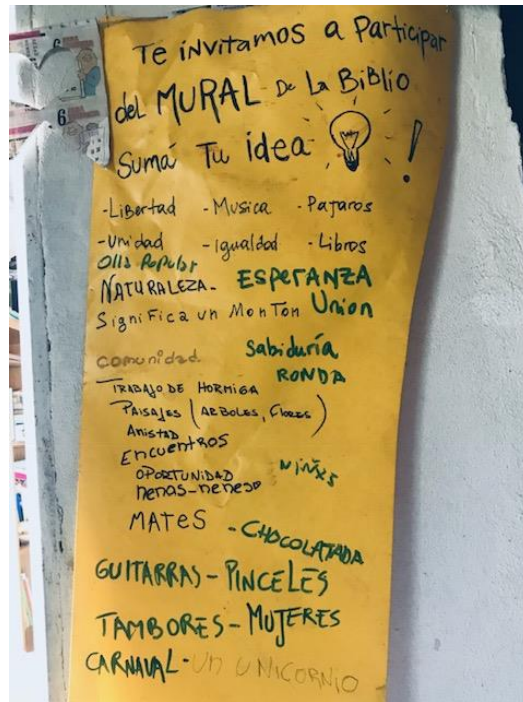 6
6
Te invitamos a Participar
del MURAL De La Biblio
Sumá Tu idea !
-Libertad -Musica -Pajaros
-Unidad -Igualdad -Libros
Olla Popular
NATURALEZA- ESPERANZA
Significa un Monton Union
comunidad Sabiduría
RONDA
TRABAJO DE HORMIGA
PAISAJES (ARBOLES, Flores)
Amistad
Encuentros
OPORTUNIDAD NIÑXS
nenas-nenes
MATES -CHOCOLATADA
GUITARRAS-PINCELES
TAMBORES-MUJERES
CARNAVAL-UN UNICORNIO